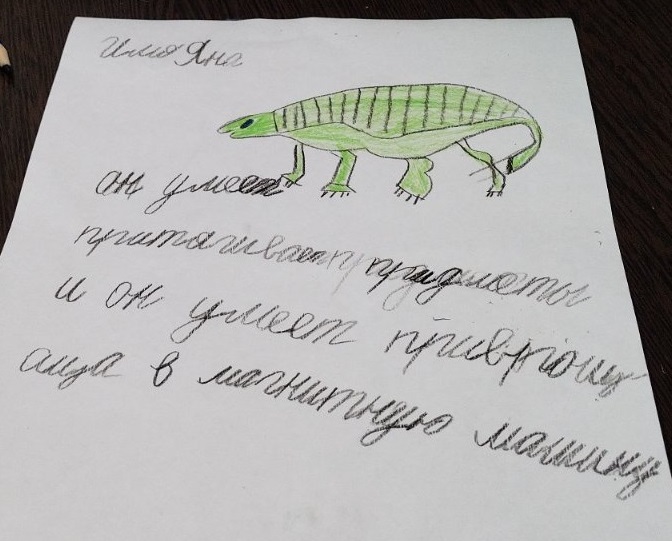 Имя Яна
он умеет
притягивает предметы
и он умеет привращ
аица в магнитную машину